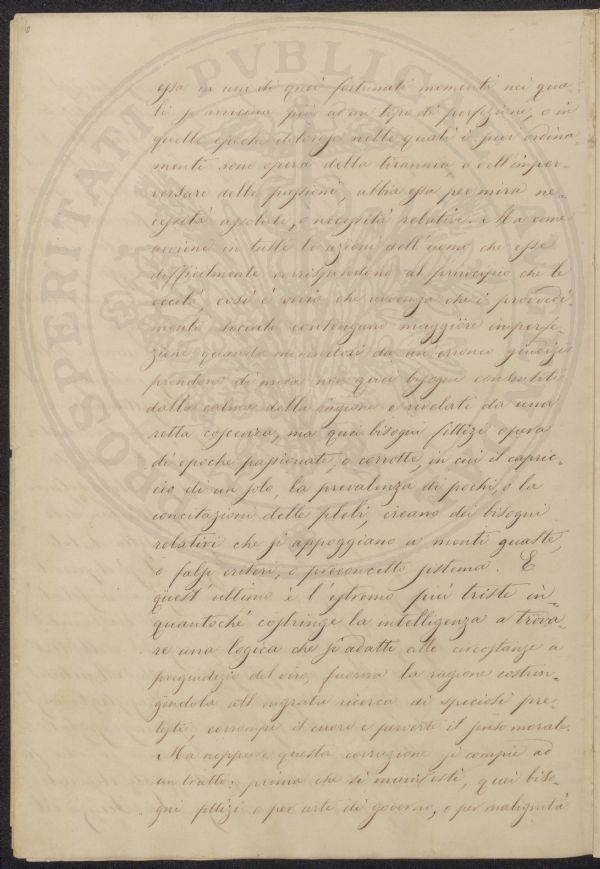 essa in uni di quei fortunati momenti nei qua-
li si avvicina più ad un tipo di perfezione, o in
quelle epoche nelle quali i puri ordina-
menti sono opera della tirannia o dell'imper-
versare delle passioni, abbia essa per mira ne-
cessità assolute, o necessità relative. Ma come
avviene in tutte le azioni dell'uomo che esse
difficilmente corrispondono al principio che le
eccitò, così è ovvio che avvenga che i provvedi-
menti sociali contengano maggiore imperfe-
zione quando movendosi da un erroneo giudizio
prendono di mira non quei bisogni consentiti
dalla calma della ragione e rivelati da una
retta coscienza, ma quei bisogni fittizi opera
di epoche passionate, o corrotte, in cui il capric-
cio di un solo, la prevalenza di pochi, o la
concitazione delle plebi, creano dei bisogni
relativi che si appoggiano a menti guaste,
o falsi criteri, o preconcetto sistema. E
quest'ultimo è l'estremo più triste in-
quantoché costringe la intelligenza a trova-
re una logica che si adatti alle circostanze a
pregiudizio del vero, la ragione costrin-
gendola coll'ingrata ricerca di speciosi pre-
testi, corrompe il cuore e perverte il senso morale.
Ma neppure questa corruzione si compie ad
un tratto: prima che si manifesti, quei biso-
gni fittizi o per arte di governo, o per malignità